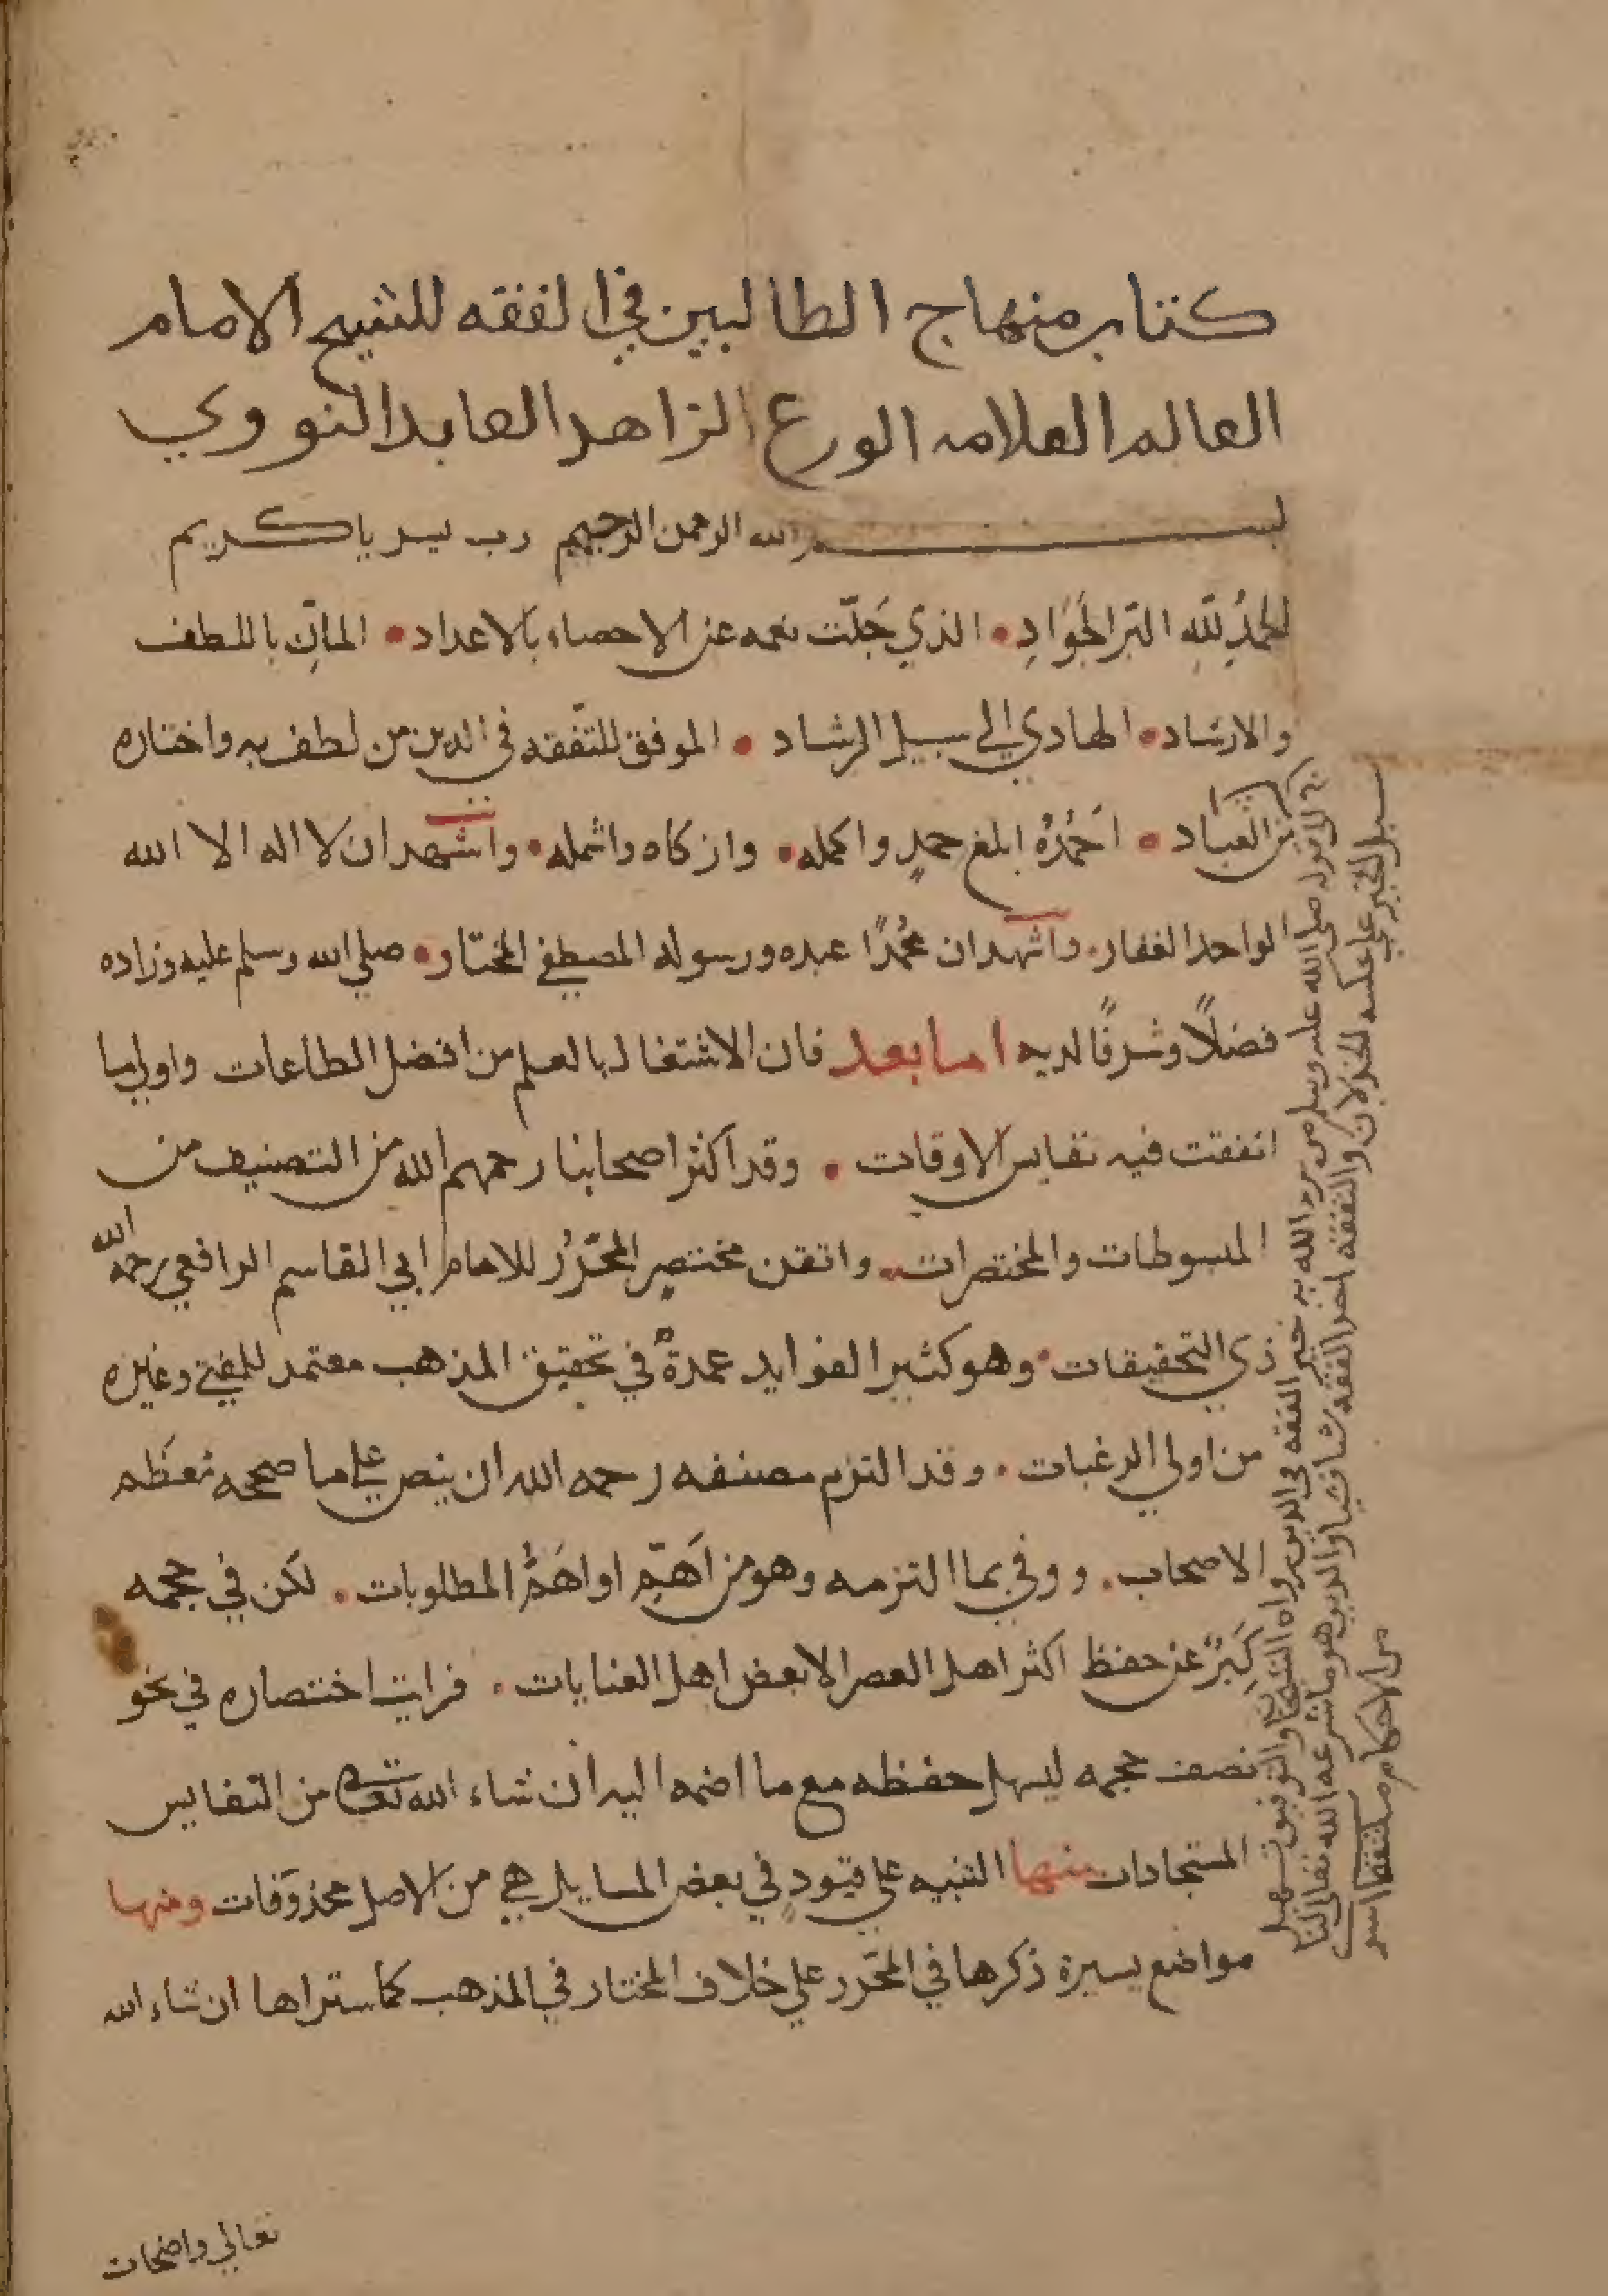 كتاب منهاج الطالبين في الفقه للشيخ الامام
العالم العلامه الورع الزاهد العابد النووي
بسم الله الرحمن الرحيم رب يسر ياكريم
الحمدُ لله البَر الجَوَادِ • الذي جَلّت نعمه عن الاحصاء بالاعداد • المانّ باللطف
والارشاد • الهادي الي سبيل الرشاد • الموفق للتّفقه في الدين من لطف به واختاره
من العباد • اَحمَدُهُ ابلغ حمدٍ واكمله • وازكاه واشمله • واشهد ان لا اله الا الله
الواحد الغفار • واشهد ان محمدًا عبده ورسوله المصطفي المختار • صلي الله وسلم عليه وزاده
فضلًا وشرفًا لديه اما بعد فان الاشتغال بالعلم من افضل الطاعات واولي ما
انفقت فيه نفايس الاوقات • وقد اكثر اصحابنا رحمهم الله من التصنيف من
المبسوطات والمختصرات • واتقن مختصرٍ المحَرّرُ للامام ابي القاسم الرافعي رحمه الله
ذي التحقيقات • وهو كثير الفوايد عمدةٌ في تحقيق المذهب معتمد للمفتي وغيره
من اولي الرغبات • وقد التزم مصنفه رحمه الله ان ينص علي ما صححه معظم
الاصحاب • ووفي بما التزمه وهو من اَهَمّ او اهَمُّ المطلوبات • لكن في حجمه
كِبَرٌ عن حفظ اكثر اهل العصر الا بعض اهل العنايات • فرايت اختصاره في نحو
نصف حجمه ليسهل حفظه مع ما اضمه اليه ان شاء الله تعالي من النفايس
المستجادات منها التنبيه علي قيودٍ في بعض المسايل هي من الاصل محذوفات ومنها
مواضع يسيرة ذكرها في المحَرّر علي خلاف المختار في المذهب كما ستراها ان شاء الله
تعالي واضحات
صلى الله عليه وسلم من يرد الله به خير الفقه في الدين رواه والتوفيق تسهيل
سبيل الخير على عكسه الخذلان والتفقه اخذ الفقه شيا فشيا والدين هو ما شرعه الله تعالى لنا
من الاحكام